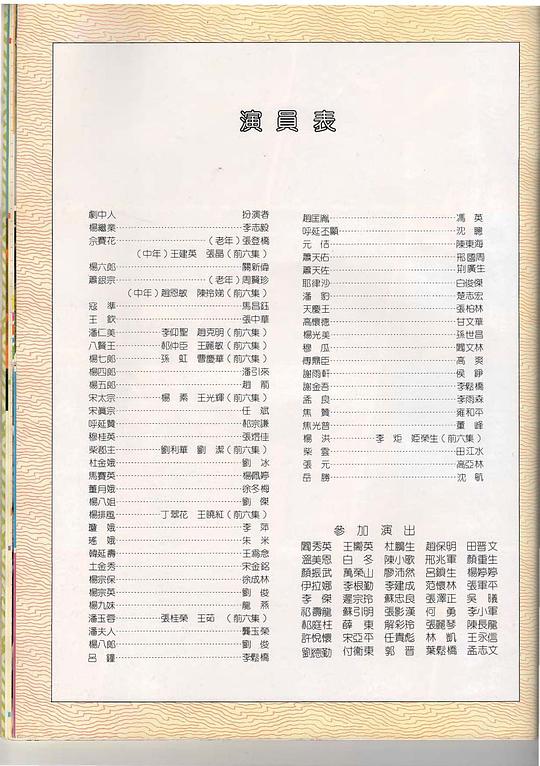 演員表
劇中人 扮演者
楊繼業 李志毅
佘賽花 (老年)張登橋
(中年)王建英 張晶(前六集)
楊六郎 關新偉
蕭銀宗 (老年)周賢珍
(中年)趙恩敏 陳玲娣(前六集)
寇準 馬昌鈺
王欽 張中華
潘仁美 李仰聖 趙克明(前六集)
八賢王 郝仲臣 王麗敏(前六集)
楊七郎 孫虹 曹慶華(前六集)
楊四郎 潘引來
楊五郎 趙箭
宋太宗 楊素 王光輝(前六集)
宋真宗 任斌
呼延贊 郝宗謙
穆桂英 張煜佳
柴郡主 劉利華 劉潔(前六集)
杜金娥 劉冰
馬賽英 楊佩婷
董月娥 徐冬梅
楊八姐 劉傑
楊排風 丁翠花 王曉紅(前六集)
瓊娥 李萍
瑤娥 朱米
韓延壽 王爲念
土金秀 宋金鉻
楊宗保 徐成林
楊宗英 劉俊
楊九妹 龍燕
潘玉蓉 張桂榮 王茹(前六集)
潘夫人 龔玉榮
楊八郎 劉俊
呂鐘 李鬆橋
趙匡胤 馮英
呼延丕顯 沈聰
元佶 陳東海
蕭天佑 邢國周
蕭天佐 荆廣生
耶律沙 白俊傑
潘豹 楚志宏
天慶王 張柏林
高懷德 甘文華
楊光美 孫世昌
穆瓜 閻文林
傅鼎臣 高爽
謝雨軒 侯錚
謝金吾 李鬆橋
孟良 李雨森
焦贊 雍和平
焦光普 董峰
楊洪 李炬 姬榮生(前六集)
柴雲 田江水
張元 高亞林
岳勝 沈航
參加演出
閻秀英 王衞英 杜鵬生 趙保明 田晋文
溫美恩 白冬 陳小歌 邢兆軍 顏重生
顏振武 萬榮山 廖沛然 呂鎖生 楊婷婷
伊拉娜 李根勤 李建成 范懷林 張軍平
李傑 遲宗玲 蘇忠良 張澤正 吳曦
祁壽龍 蘇引明 張影漢 何勇 李小軍
郝庭柱 薛東 解彩玲 張麗琴 陳長龍
許悅懷 宋亞平 任貴彪 林凱 王永信
劉德勤 付衞東 郭晋 葉鬆橋 孟志文